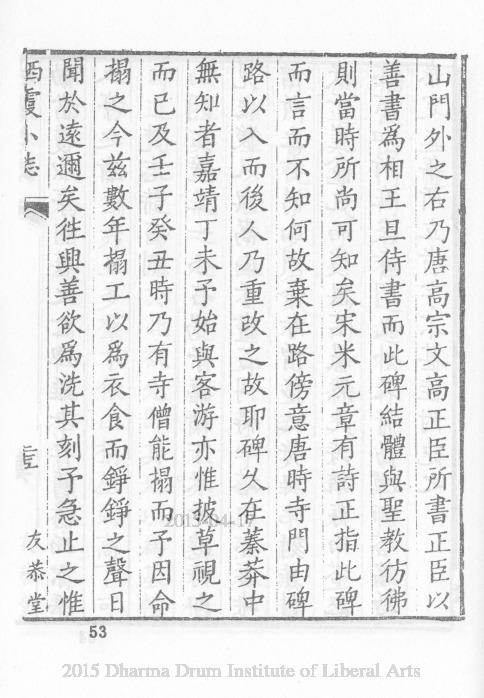 山門外之右乃唐高宗文高正臣所書正臣以
善書爲相王旦侍書而此碑結體與聖教彷彿
則當時所尚可知矣宋米元章有詩正指此碑
而言而不知何故棄在路傍意唐時寺門由碑
路以入而後人乃重改之故耶碑久在蓁莽中
無知者嘉靖丁未予始與客游亦惟披草視之
而已及壬子癸丑時乃有寺僧能搨而予因命
搨之今茲數年搨工以爲衣食而錚錚之聲日
聞於遠邇矣徃興善欲爲洗其刻予急止之惟
栖霞小志
友恭堂
53
2013-04-17
2015 Dharma Drum Institute of Liberal Arts